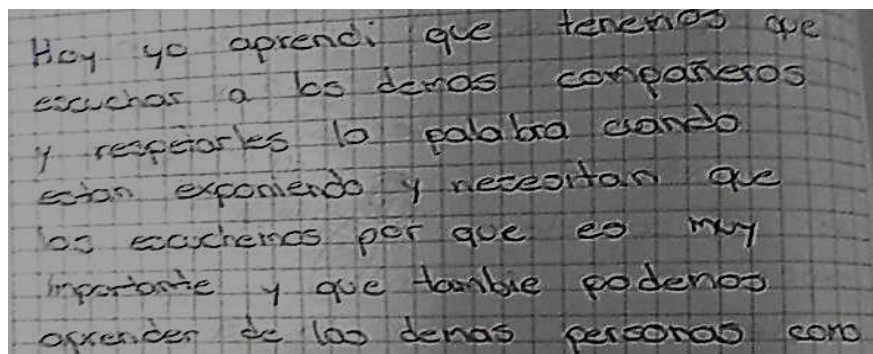 Hoy yo aprendi que tenemos que
escuchar a los demas compañeros
y respetarles la palabra cuando
estan exponiendo y necesitan que
los escuchemos por que es muy
importante y que tambie podemos
aprender de las demas personas como